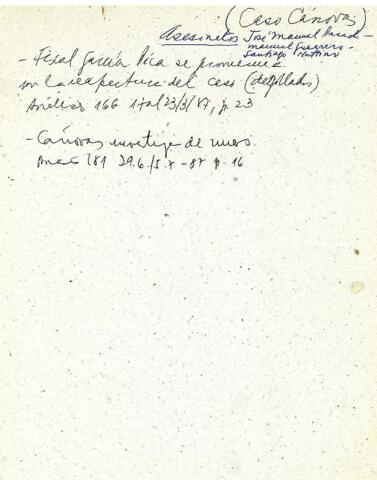 (Caso Cánovas)
Asesinatos José Manuel Parada-
Manuel Guerrero-
Santiago Nattino
- Fiscal García Pica se pronuncia
con la reapertura del caso (degollados)
Análisis 166 17 al 23/3/87, p. 23
- Cánovas investiga de nuevo.
181 29.6/5.7-87 p. 16